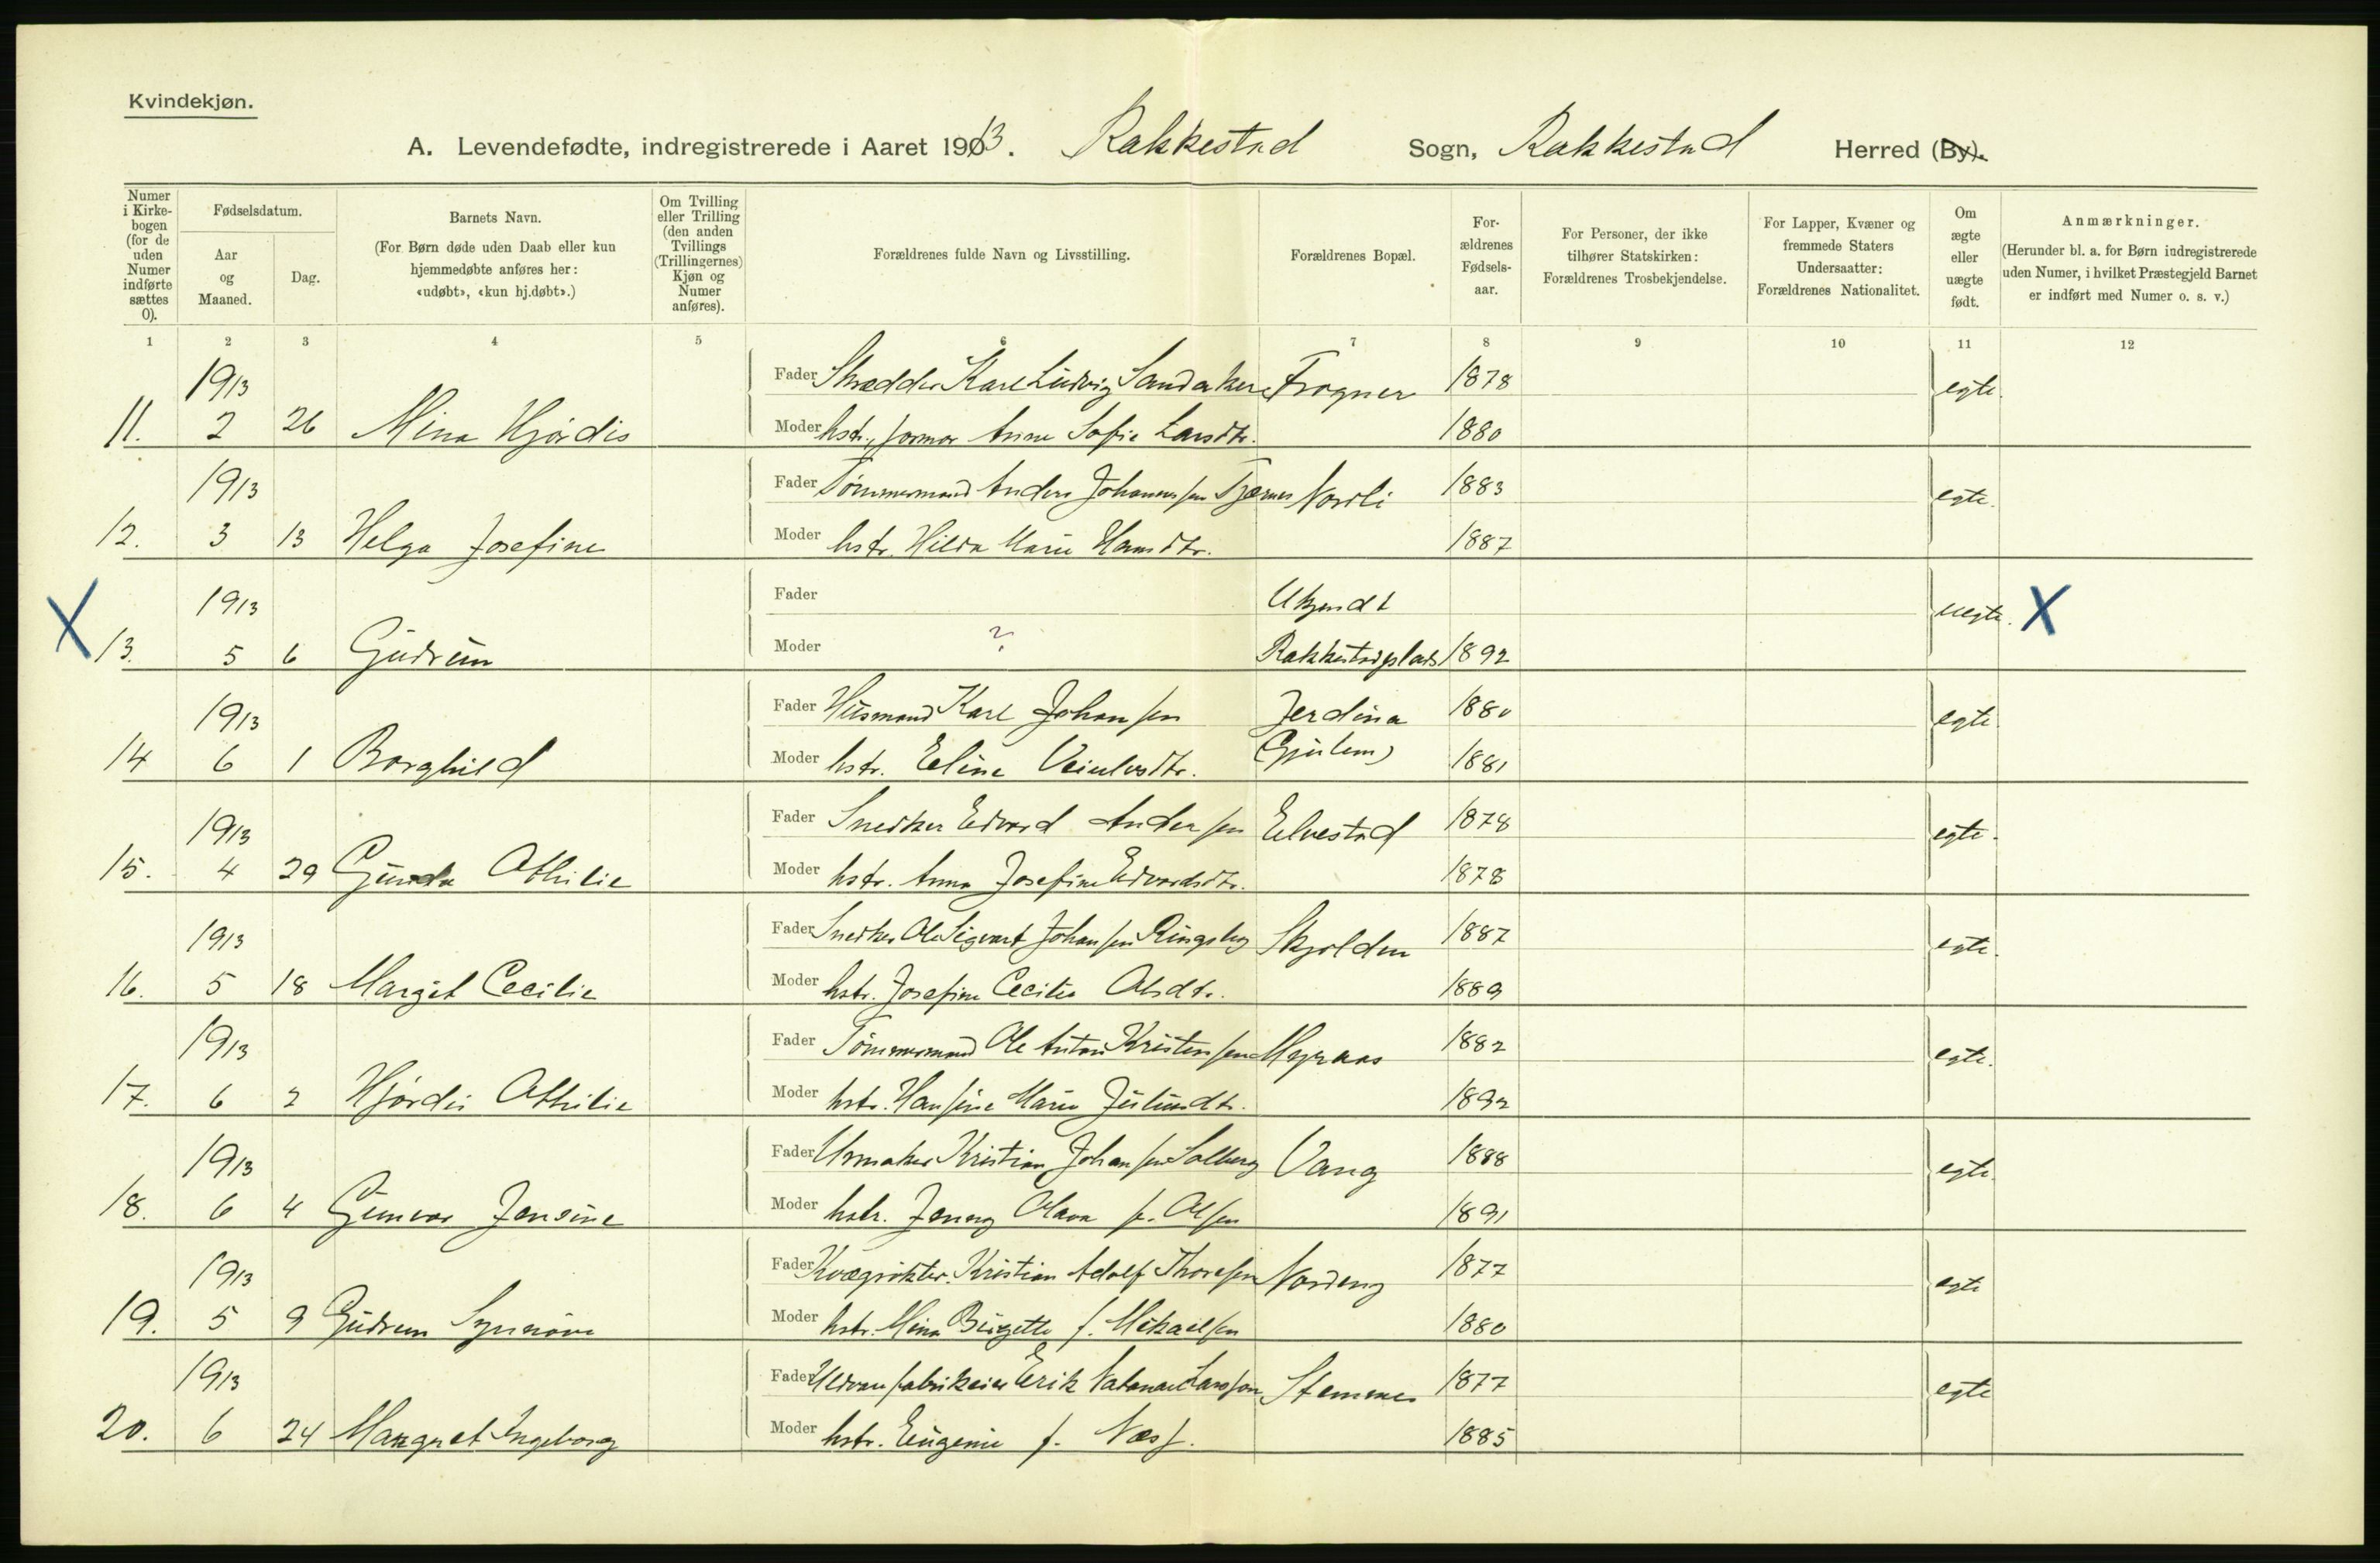 Kvindekjøn.
A. Levendefødte, indregistrerede i Aaret 1913. Rakkestad Sogn, Rakkestad Herred (By).
Numer i Kirkebogen (for de uden Numer indførte sættes 0).
Fødselsdatum.
Aar og Maaned.
Dag.
Barnets Navn.
(For Børn døde uden Daab eller kun hjemmedøbte anføres her: «udøbt», «kun hj.døbt».)
Om Tvilling eller Trilling (den anden Tvillings (Trillingernes) Kjøn og Numer anføres).
Forældrenes fulde Navn og Livsstilling.
Forældrenes Bopæl.
Forældrenes Fødselsaar.
For Personer, der ikke tilhører Statskirken: Forældrenes Trosbekjendelse.
For Lapper, Kvæner og fremmede Staters Undersaatter: Forældrenes Nationalitet.
Om ægte eller uægte født.
Anmærkninger.
(Herunder bl. a. for Børn indregistrerede uden Numer, i hvilket Præstegjeld Barnet er indført med Numer o. s. v.)
1 2 3 4 5 6 7 8 9 10 11 12
1913 Fader Skrædder Karl Ludvig Sandaker Frogner 1878 egte.
11. 2 26 Mina Hjørdis Moder hstr., Anne Sofie Larsdtr. 1880
1913 Fader Tømmermand Anders Johannessen Tjernes Nordli 1883 egte.
12. 3 13 Helga Josefine Moder hstr. Hilda Marie Hansdtr. 1887
1913 Fader Ukjendt uegte. X
X 13. 5 6 Gudrun Moder ? Rakkestadplads 1892
1913 Fader Husmand Karl Johansen 1880 egte
14 6 1 Borghild Moder hstr. Eline 1881
1913 Fader Snedker Edvard Andersen Elvestad 1878 egte.
15. 4 29 Gunda Othilie Moder hstr. Anna Josefine Edvardsdtr. 1878
1913 Fader Snedker Ole Sigvart Johansen Ringsby Skjolden 1887 egte.
16. 5 18 Margit Cecilie Moder hstr. Josefine Cecilie Olsdtr. 1889
1913 Fader Tømmermand Ole Anton Kristensen Myraas 1882 egte.
17. 6 2 Hjørdis Othilie Moder hstr. Hansine Marie 1892
1913 Fader Urmaker Kristian Johansen Solberg Vang 1888 egte.
18. 6 4 Gunvor Jensine Moder hstr. Jenny Olava f. Olsen 1891
1913 Fader Kvægrøkter. Kristian Adolf Thoresen Nordeng 1877 egte
19. 5 9 Gudrun Synnøve Moder hstr. Mina Birgitte f. Mikaelsen 1880
1913 Fader Uldvarefabrikeier Erik Natanael Larsson 1877 egte
20. 6 24 Margret Ingeborg Moder hstr. Eugenie f. Næss. 1885